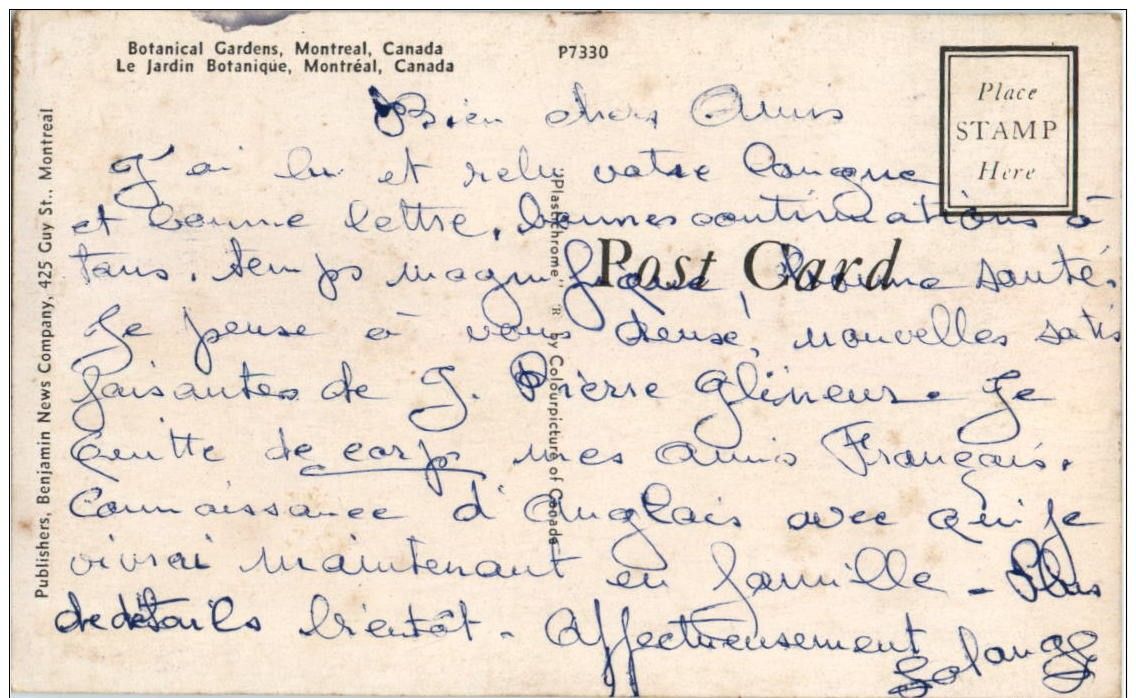 Botanical Gardens, Montreal, Canada
Le Jardin Botanique, Montréal, Canada
P7330
Place
STAMP
Here
Publishers, Benjamin News Company, 425 Guy St., Montreal
"Plastichrome" "R" by Colourpicture of Canada
Post Card
Bien chers Amis
J'ai lu et relu votre longue
et bonne lettre, bonnes continuations à
tous. temps magnifique, bonne santé.
Je pense à vous deux, nouvelles satis
faisantes de J. Pierre Glineur. Je
quitte de corps mes amis Français.
Connaissance d'Anglais avec qui je
vivrai maintenant en famille - Plus
de détails bientôt - Affectueusement
Solange